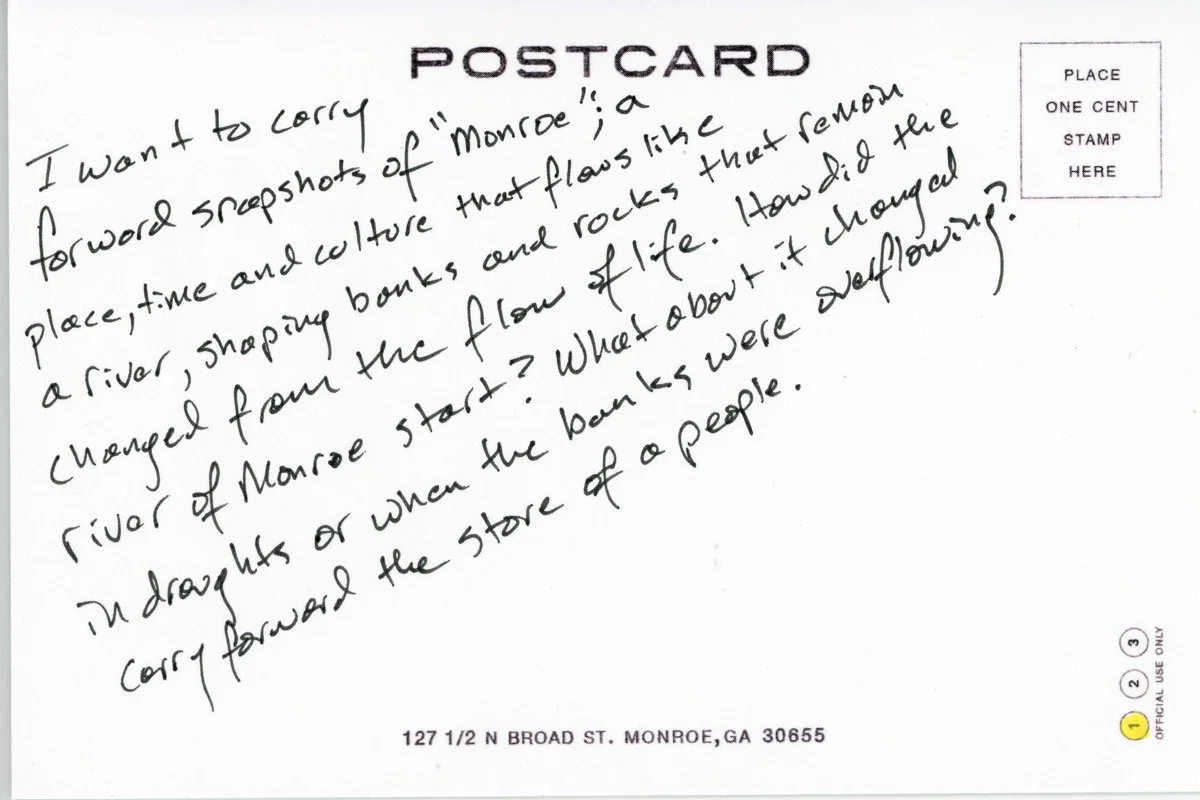 POSTCARD
PLACE
ONE CENT
STAMP
HERE
I want to carry
forward snapshots of "Monroe"; a
place, time and culture that flows like
a river, shaping banks and rocks that remain
changed from the flow of life. How did the
river of Monroe start? What about it changed
in droughts or when the banks were overflowing?
carry forward the store of a people.
127 1/2 N BROAD ST. MONROE,GA 30655
1 2 3
OFFICIAL USE ONLY